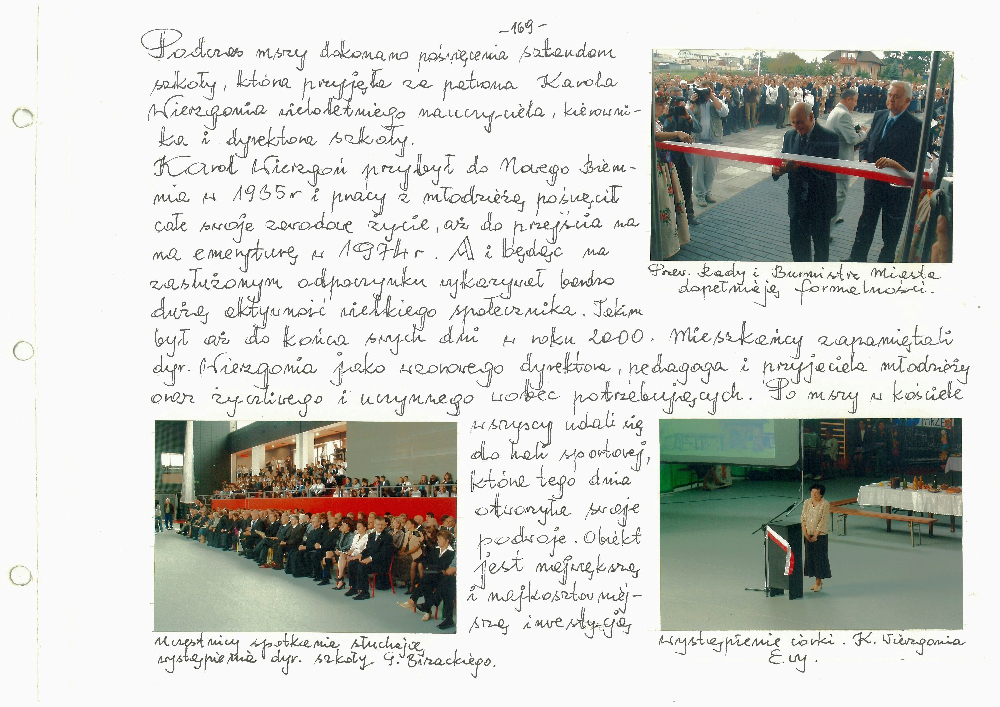 -169-
Podczas mszy dokonano poświęcenia sztandaru
szkoły, która przyjęła za patrona Karola
Wierzgonia wieloletniego nauczyciela, kierowni-
ka i dyrektora szkoły.
Karol Wierzgoń przybył do Nowego Bieru-
nia w 1935r i pracy z młodzieżą poświęcił
całe swoje zawodowe życie, aż do przejścia na
na emeryturę w 1974r. A i będąc na
zasłużonym odpoczynku wykazywał bardzo
dużą aktywność wielkiego społecznika. Takim
był aż do końca swych dni w roku 2000. Mieszkańcy zapamiętali
dyr. Wierzgonia jako wzorowego dyrektora, pedagoga i przyjaciela młodzieży
oraz życzliwego i uczynnego wobec potrzebujących. Po mszy w kościele
wszyscy udali się
do hali sportowej,
która tego dnia
otworzyła swoje
podwoje. Obiekt
jest największą
i najkosztowniej-
szą inwestycją
Przew. Rady i Burmistrz Miasta
dopełniają formalności.
Uczestnicy spotkania słuchają
wystąpienia dyr. szkoły G. Bizackiego.
wystąpienie córki. K. Wierzgonia
Ewy.